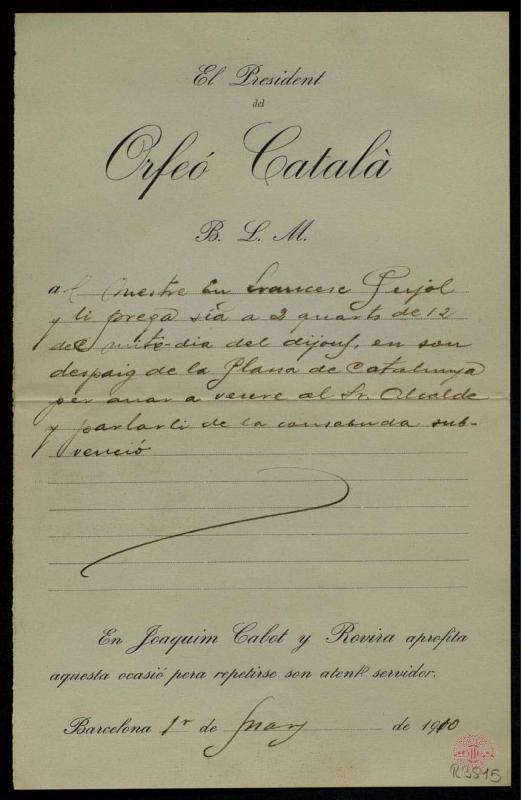 El President
del
Orfeó Català
B. L. M.
al mestre En Francesc Pujol
y li prega sía a 2 quarts de 12
del mitg-dia del dijous, en son
despaig de la Plassa de Catalunya
per anar a veure al Sr. Alcalde
y parlarli de la consabuda sub-
venció
En Joaquim Cabot y Rovira aprofita
aquesta ocasió pera repetirse son atent servidor.
Barcelona 1r de Mars de 1910
R3815